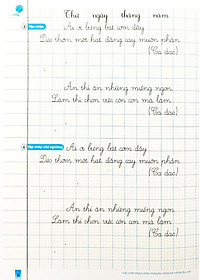 Thứ ngày tháng năm
Ai ơi bưng bát cơm đầy
Dẻo thơm một hạt đắng cay muôn phần
(Ca dao)
Ăn thì ăn những miếng ngon
Làm thì chọn việc cỏn con mà làm
(Ca dao)
Ai ơi bưng bát cơm đầy
Dẻo thơm một hạt đắng cay muôn phần
(Ca dao)
Ăn thì ăn những miếng ngon
Làm thì chọn việc cỏn con mà làm
(Ca dao)